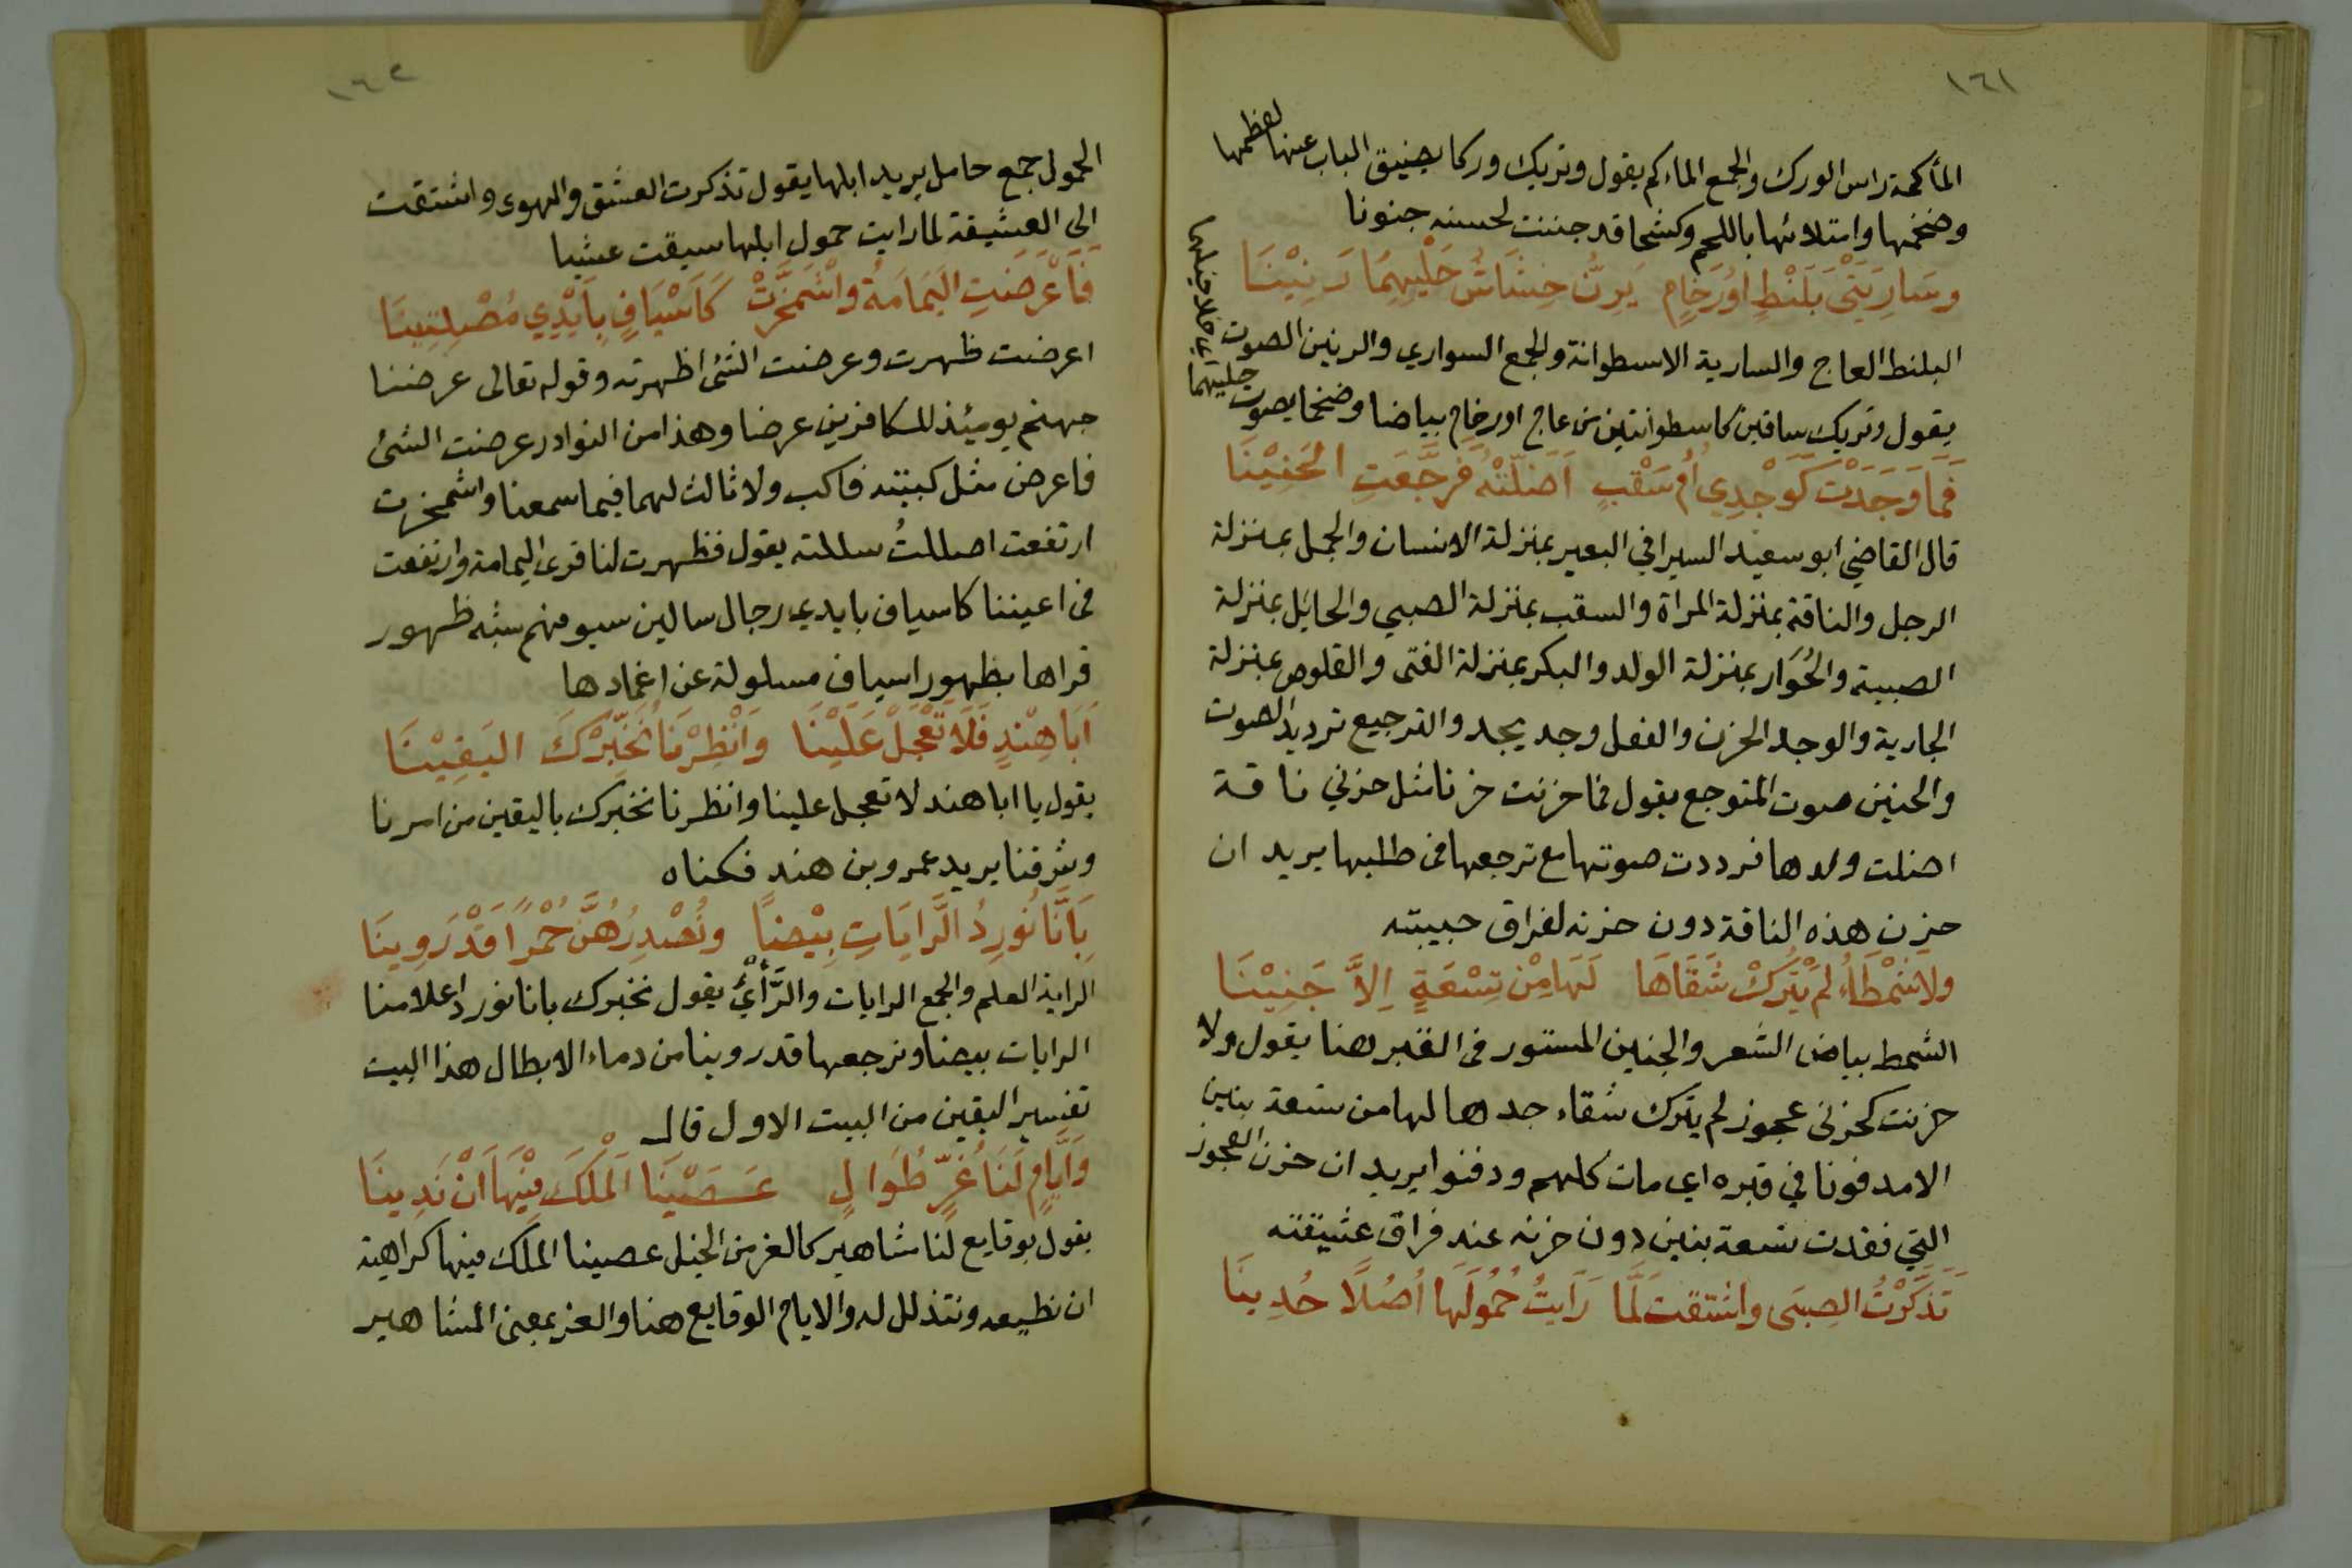 ١٦١
المأكمة راس الورك والجمع الماءكم يقول وتريك وركا يضيق الباب عنها لعظمها
وضخمها وامتلائها باللحم وكشحا قد جننت لحسنه جنونا
وسَارِيَتَيْ بَلَنْطٍ اَوْ رُخَامٍ يَرِنُّ خِشَاشُ حَلْيِهِمَا رَنِيْنَا
البلنط العاج والسارية الاسطوانة والجمع السواري والرنين الصوت
يقول وتريك ساقين كاسطوانتين من عاج او رخام بياضا وضخما يصوت حليهما
اي خلاخيلهما
فَمَا وَجَدَتْ كَوَجْدِي أُمُّ سَقْبٍ اَضَلَّتْهُ فَرَجَّعَتِ الحَنِيْنَا
قال القاضي ابو سعيد السيرافي البعير بمنزلة الانسان والجمل بمنزلة
الرجل والناقة بمنزلة المراة والسقب بمنزلة الصبي والحايل بمنزلة
الصبية والحُوَار بمنزلة الولد والبكر بمنزلة الفتى والقلوص بمنزلة
الجارية والوجد الحزن والفعل وجد يجد والترجيع ترديد الصوت
والحنين صوت المتوجع يقول فما حزنت حزنا مثل حزني ناقة
اضلت ولدها فرددت صوتها مع ترجعها فى طلبها يريد ان
حزن هذه الناقة دون حزنه لفراق حبيبته
ولا شَمْطَاءُ لم يَتْرُكْ شَقَاهَا لَهَا مِنْ تِسْعَةٍ اِلاَّ جَنِيْنَا
الشمط بياض الشعر والجنين المستور فى القبر هنا يقول ولا
حزنت كحزنى عجوز لم يترك شقاء جدها لها من تسعة بنين
الا مدفونا في قبره اى مات كلهم ودفنوا يريد ان حزن العجوز
التي فقدت تسعة بنين دون حزنه عند فراق عشيقته
تَذَكَّرْتُ الصِبَى واشتقتُ لَمَّا رَاَيتُ حُمُولَهَا اُصُلًا حُدِينَا
١٦٢
الحمول جمع حامل يريد ابلها يقول تذكرت العشق والهوى واشتقت
الى العشيقة لما رايت حمول ابلها سيقت عشيا
فَاَعْرَضَتِ اليَمَامَةُ واشْمَخَرَّتْ كَاَسْيَافٍ بِاَيْدِي مُصْلِتِينَا
اعرضت ظهرت وعرضت الشئ اظهرته وقوله تعالى عرضنا
جهنم يومئذ للكافرين عرضا وهذا من النوادر عرضت الشئ
فاعرض مثل كببته فاكب ولا ثالث لهما فيما سمعنا واشمخرت
ارتفعت اصللتُ سللته يقول فظهرت لنا قرى اليمامة وارتفعت
فى اعيننا كاسياف بايدي رجال سالين سيوفهم شبه ظهور
قراها بظهور اسياف مسلولة عن اغمادها
اَبَا هِنْدٍ فَلَا تَعْجَلْ عَلَيْنَا وَانْظِرْنَا نُخَبِّرْكَ اليَقِيْنَا
يقول يا ابا هند لا تعجل علينا وانظرنا نخبرك باليقين من امرنا
وشرفنا يريد عمرو بن هند فكناه
بِاَنَّا نُورِدُ الرَّايَاتِ بِيْضًا ونُصْدِرُهُنَّ حُمْرًا قَدْ رَوِينَا
الراية العلم والجمع الرايات والرَّأْيُ يقول نخبرك بانا نورد اعلامنا
الرايات بيضا ونرجعها قد روينا من دماء الابطال هذا البيت
تفسير اليقين من البيت الاول قال
وَاَيَّامٍ لَنَا غُرٍّ طُوَالٍ عَصَيْنَا المَلْكَ فِيْهَا اَنْ نَدِينَا
يقول بوقايع لنا مشاهير كالغر من الخيل عصينا الملك فيها كراهية
ان نطيعه ونتذلل له والايام الوقايع هنا والغر بمعنى المشاهير